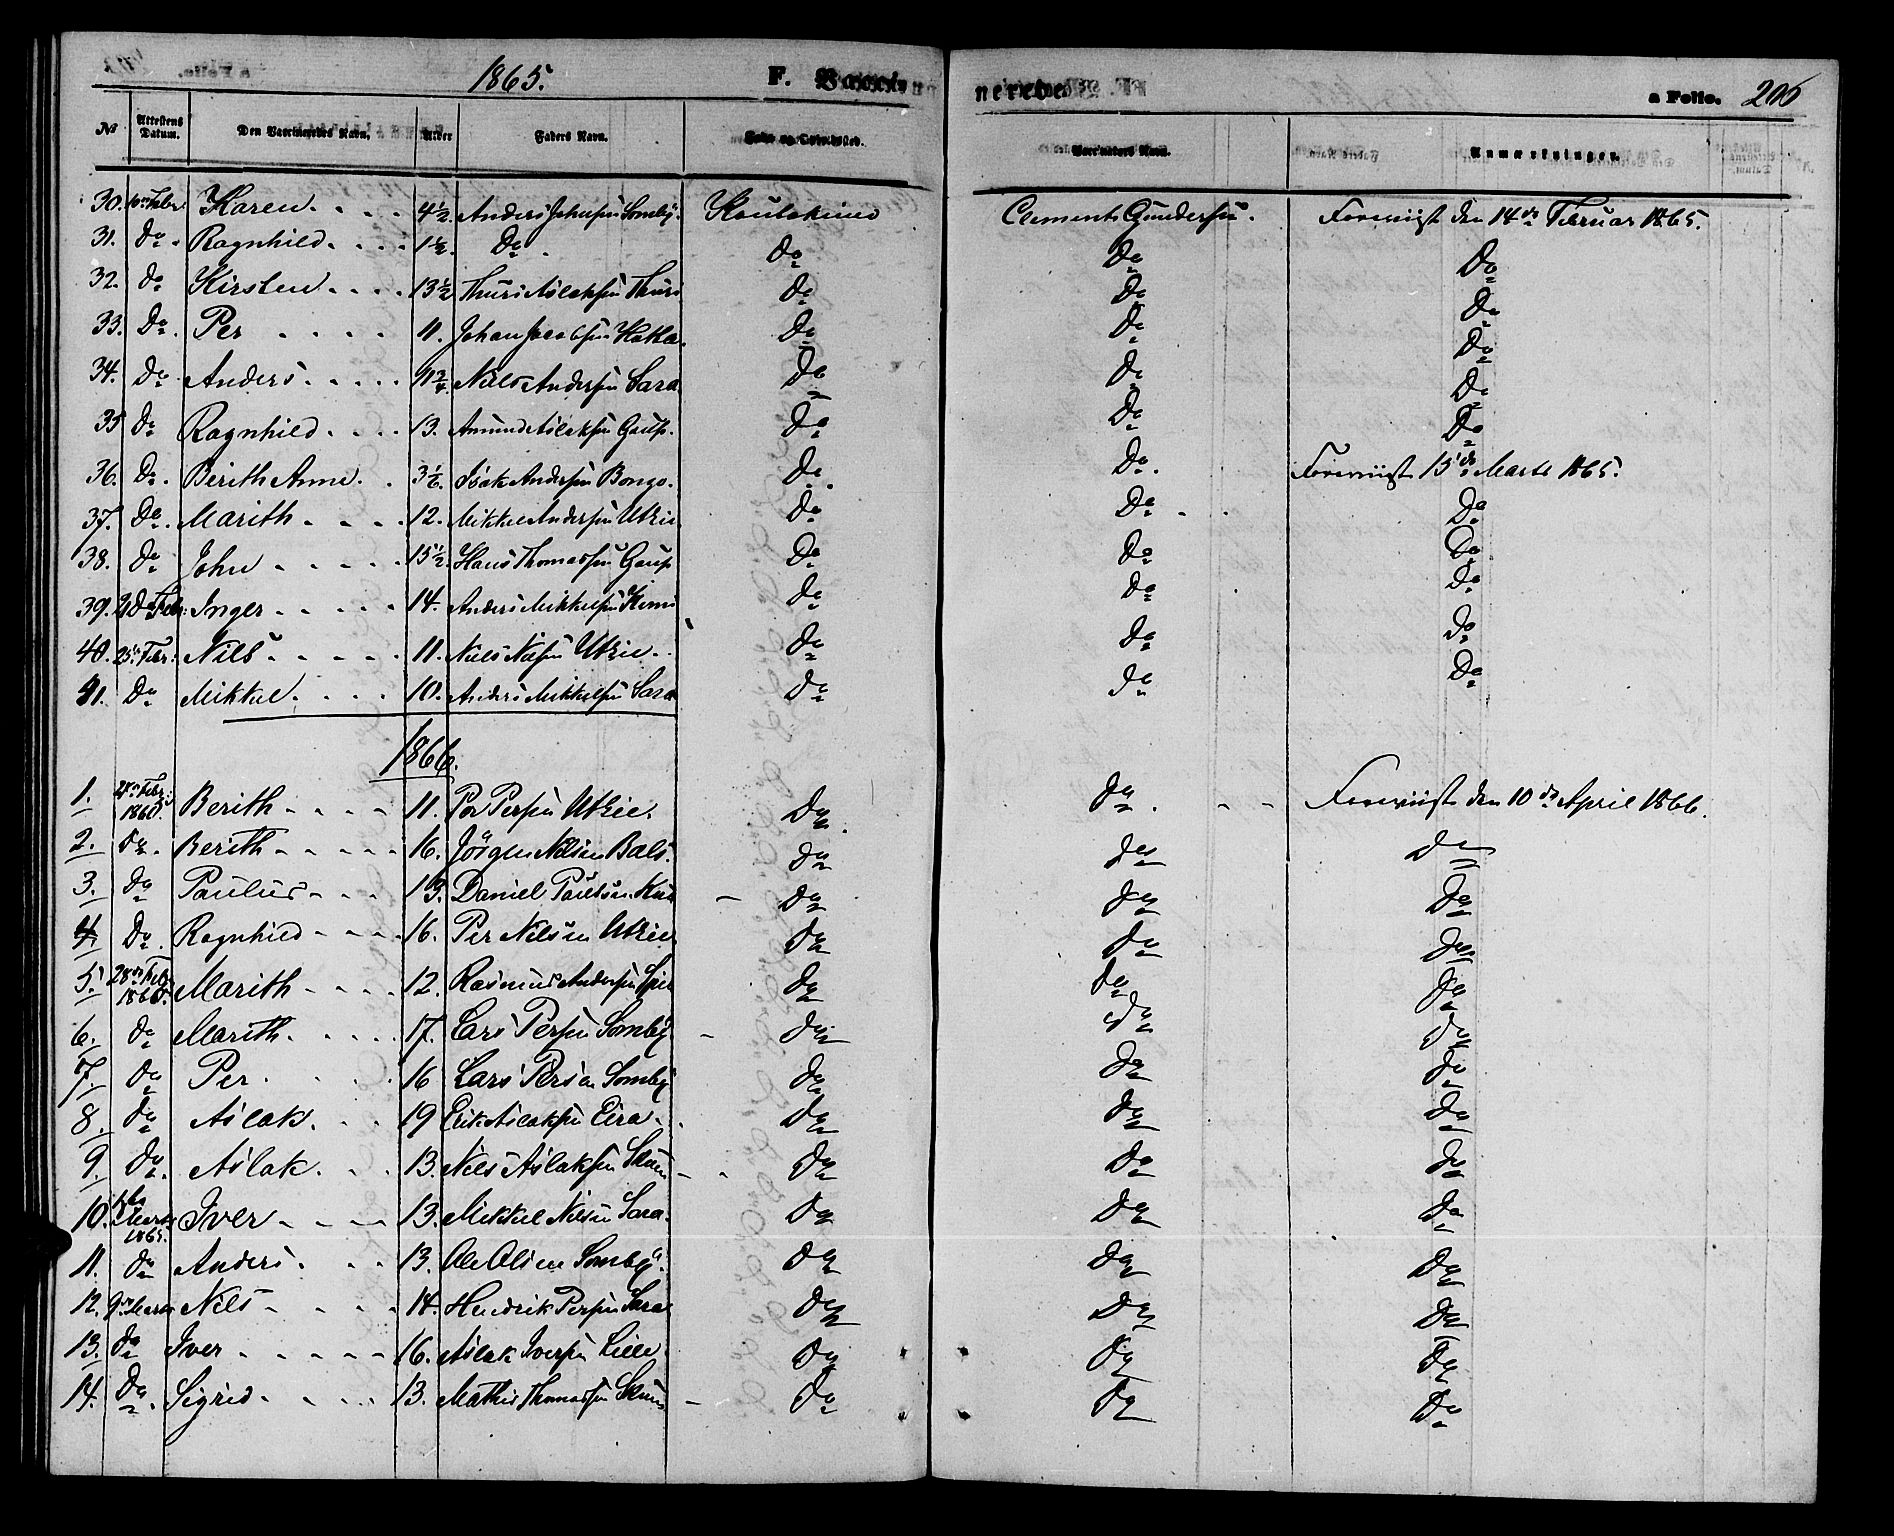 1865. F. Vaccinerede. a Folio. 206
No Attestens Datum. Den Vaccineredes Navn. Alder Faders Navn. Vaccinateurs Navn. Anmærkninger.
30. 10de Febr. Karen. 4½. Anders Johnsen Somby. Koutokeino Clement Gundersen. Foreviist den 14de Februar 1865.
31. Do. Ragnhild. 1½. Do. Do Do Do
32. Do Kirsten. 13½ Thuri Aslaksen Thuri Do Do Do
33. Do. Per 11. Johan Jacobsen Hætta. Do Do Do
34. Do Anders. 11¾ Nils Andersen Sara Do Do Do
35 Do Ragnhild. 13. Amund Aslaksen Gaup. Do Do Do
36. Do. Berith Anne. Isak Andersen Bongo. Do. Do. Foreviist 15de Marts 1865.
37. Do. Marith 12. Mikkel Andersen Utzie Do Do Do
38. Do John 15½. Hans Thomassen Gaup Do Do Do
39. Febr. Inger 14. Anders Mikkelsen Do Do Do
40. 25de Febr. Nils 11. Niels Nilsen Utzie. Do Do Do
41. Do Mikkel. 10. Anders Mikkelsen Sara Do Do Do
1866.
1. Febr. Berith 11. Per Persen Utzie. Do. Do. Foreviist den 10de April 1866.
2. Do. Berith 16. Jörgen Nilsen Bals. Do Do Do
3. Do Paulus 13. Daniel Paulsen Do Do Do
4 Do. Ragnhild 16. Per Nilsen Utzie Do Do Do
5. 28de Febr. Marith 12. Rasmus Andersen Do Do Do
6. Do Marith. 17. Lars Persen Somby Do Do Do
7. Do Per. 16 Lars Persen Somby Do Do Do
8. Do Aslak. 19 Erik Aslaksen Eira. Do Do Do
9. Do. Aslak. 13. Nils Aslaksen Do Do Do
10. Marts 1865. Iver 13. Mikkel Nilsen Sara. Do Do Do
11. Do Anders. 13. Ole Olsen Somby. Do Do Do
12. 9de Marts Nils 14. Hendrik Persen Sara Do Do Do
13. Do Iver 16. Aslak Iversen Do Do Do
14. Do. Sigrid. 13. Mathis Thomassen Do Do Do